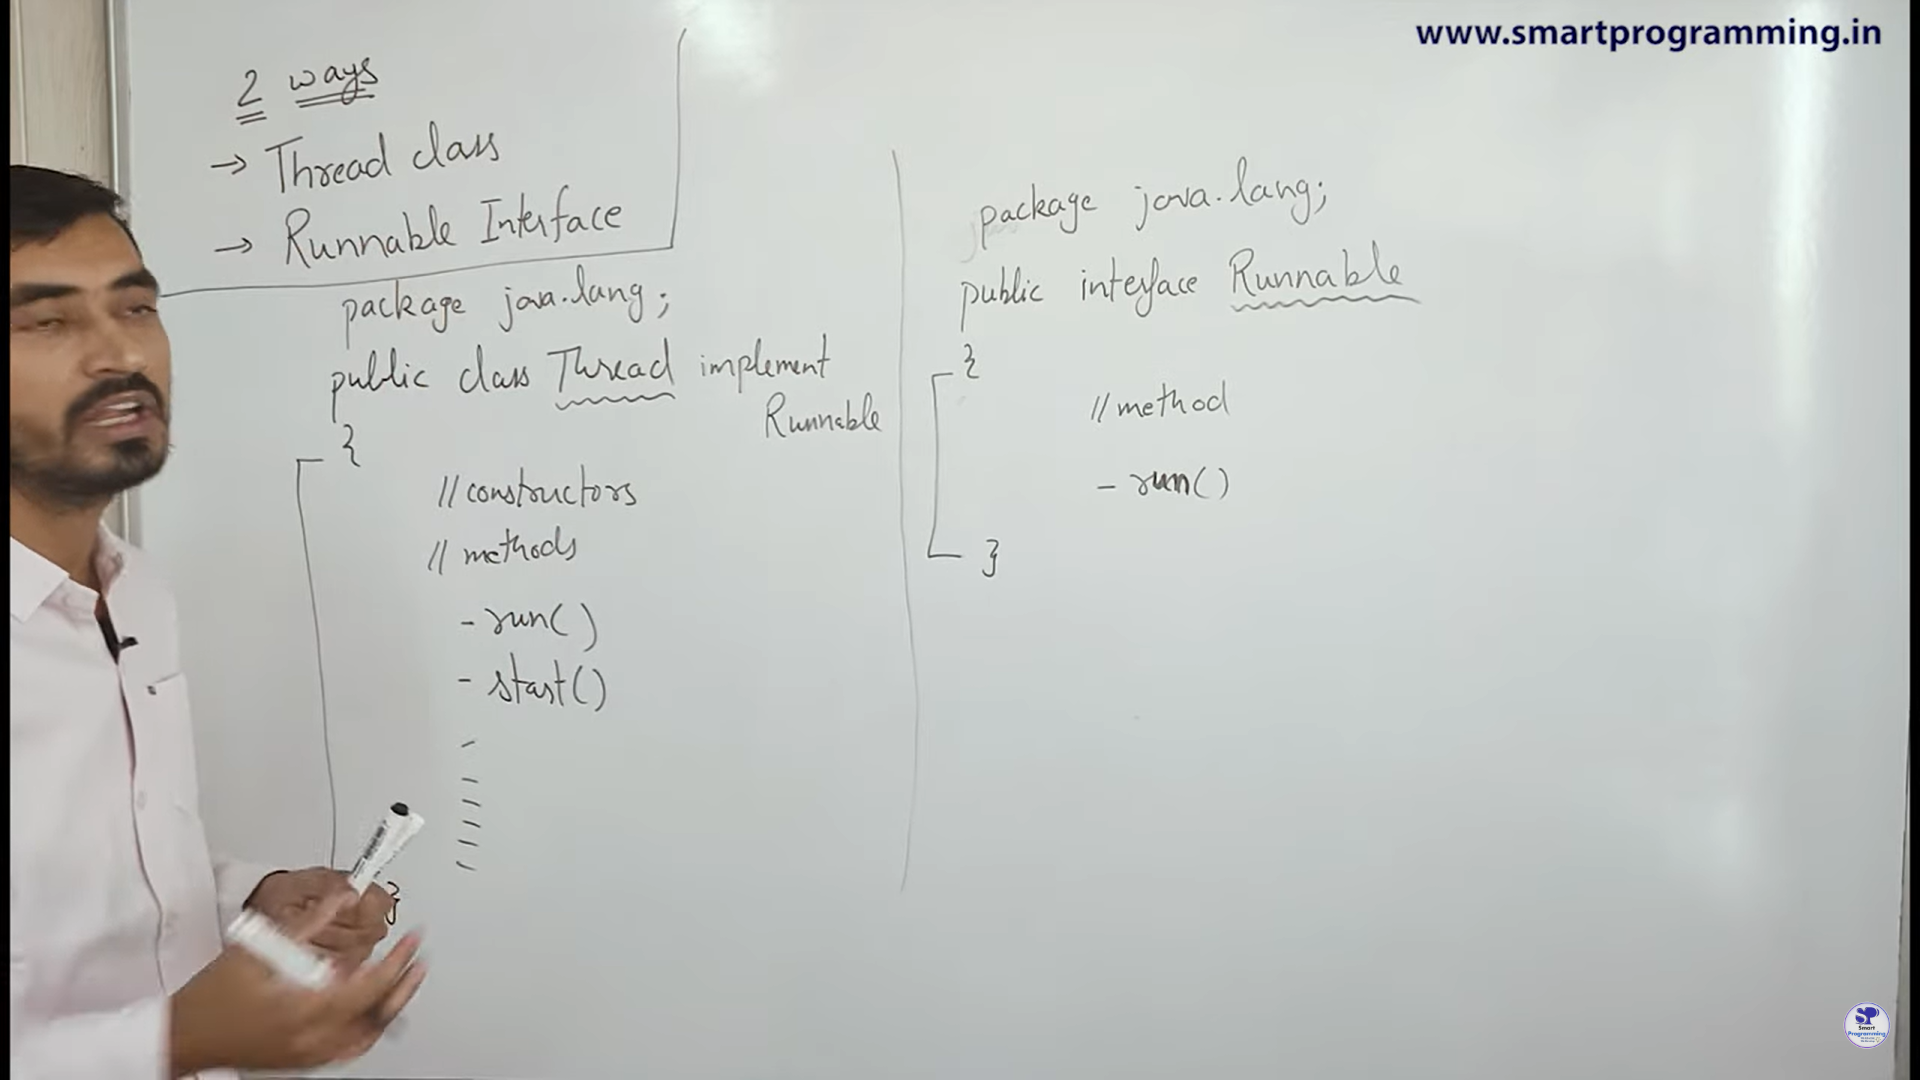 www.smartprogramming.in
2 ways
→ Thread class
→ Runnable Interface
package java.lang;
public class Thread implement
Runnable
{
//constructors
// methods
- run()
- start()
}
package java.lang;
public interface Runnable
{
// method
- run()
}
SP
Smart
Programming